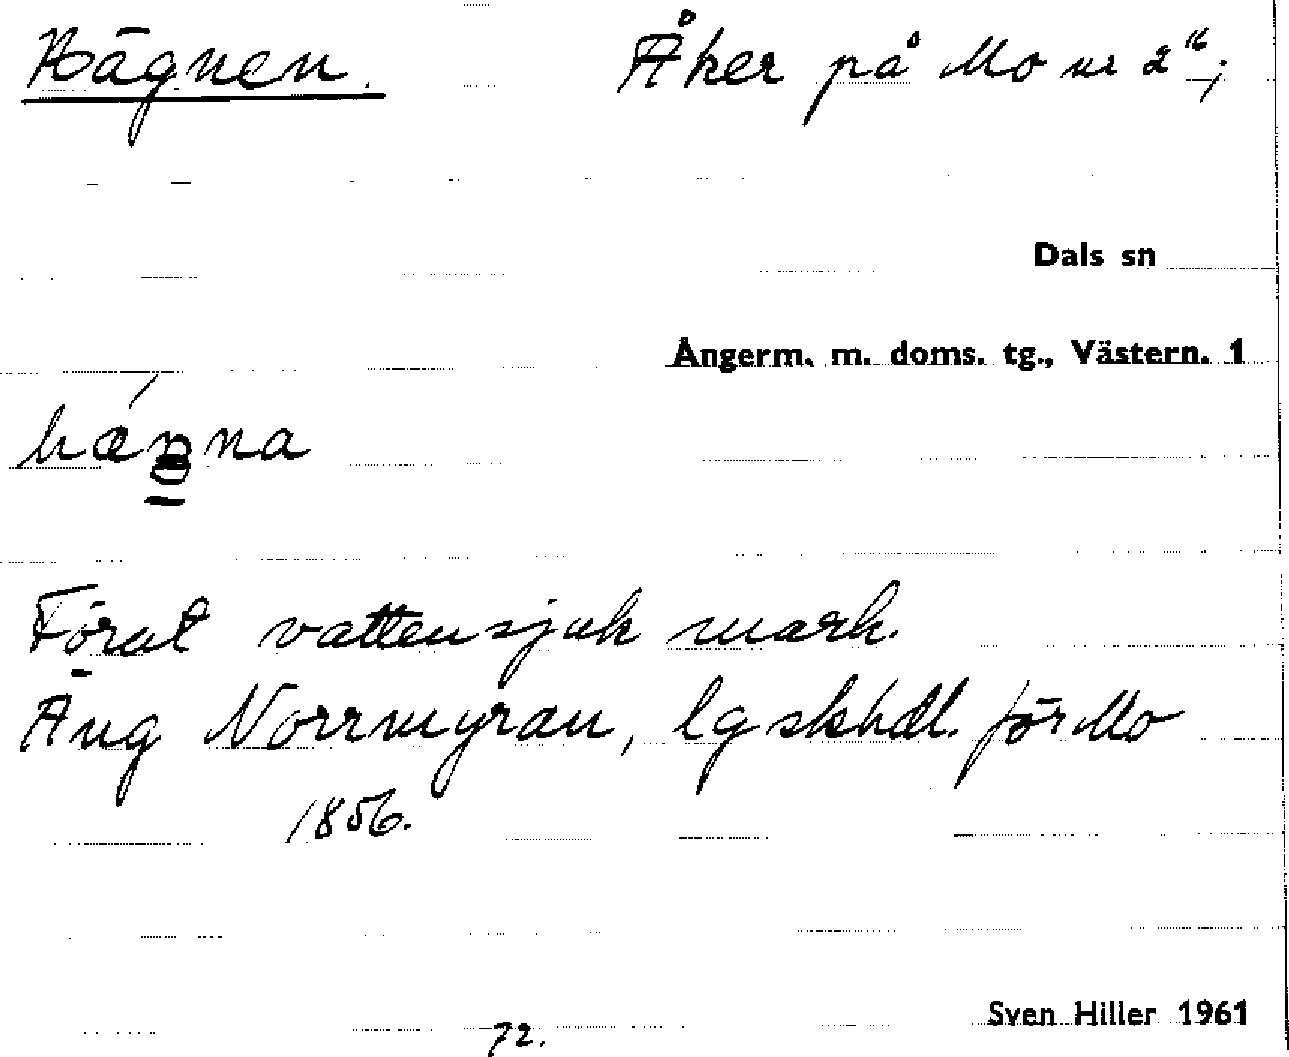 Hägnen. Åker på Mo nr 2¹⁶;
Dals sn
Ångerm. m. doms. tg., Västern. 1
Förut vattensjuk mark.
Äng Norrmyran, lgskhdl. för Mo
1856.
Sven Hiller 1961
72.